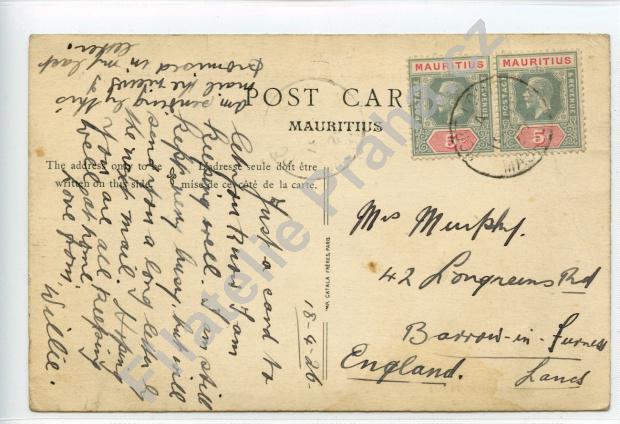 POST CAR
MAURITIUS
The address only to be
written on this side.
L'adresse seule doit être
mise de ce côté de la carte.
IMP. CATALA FRÈRES, PARIS
MAURITIUS
POSTAGE
REVENUE
5
MAURITIUS
POSTAGE
REVENUE
5
18-4-26
Just a card to
let you know I am
keeping well. I am still
kept very busy, but will
send you a long letter by
the next mail. Hoping
you are all keeping
well at home.
Love from,
Willie.
am sending by this
mail the views I
promised in my last
letter.
Mrs Murphy.
42 Longreens Rd
Barrow-in-Furness
Lancs
England.
Filatelie Praha.cz